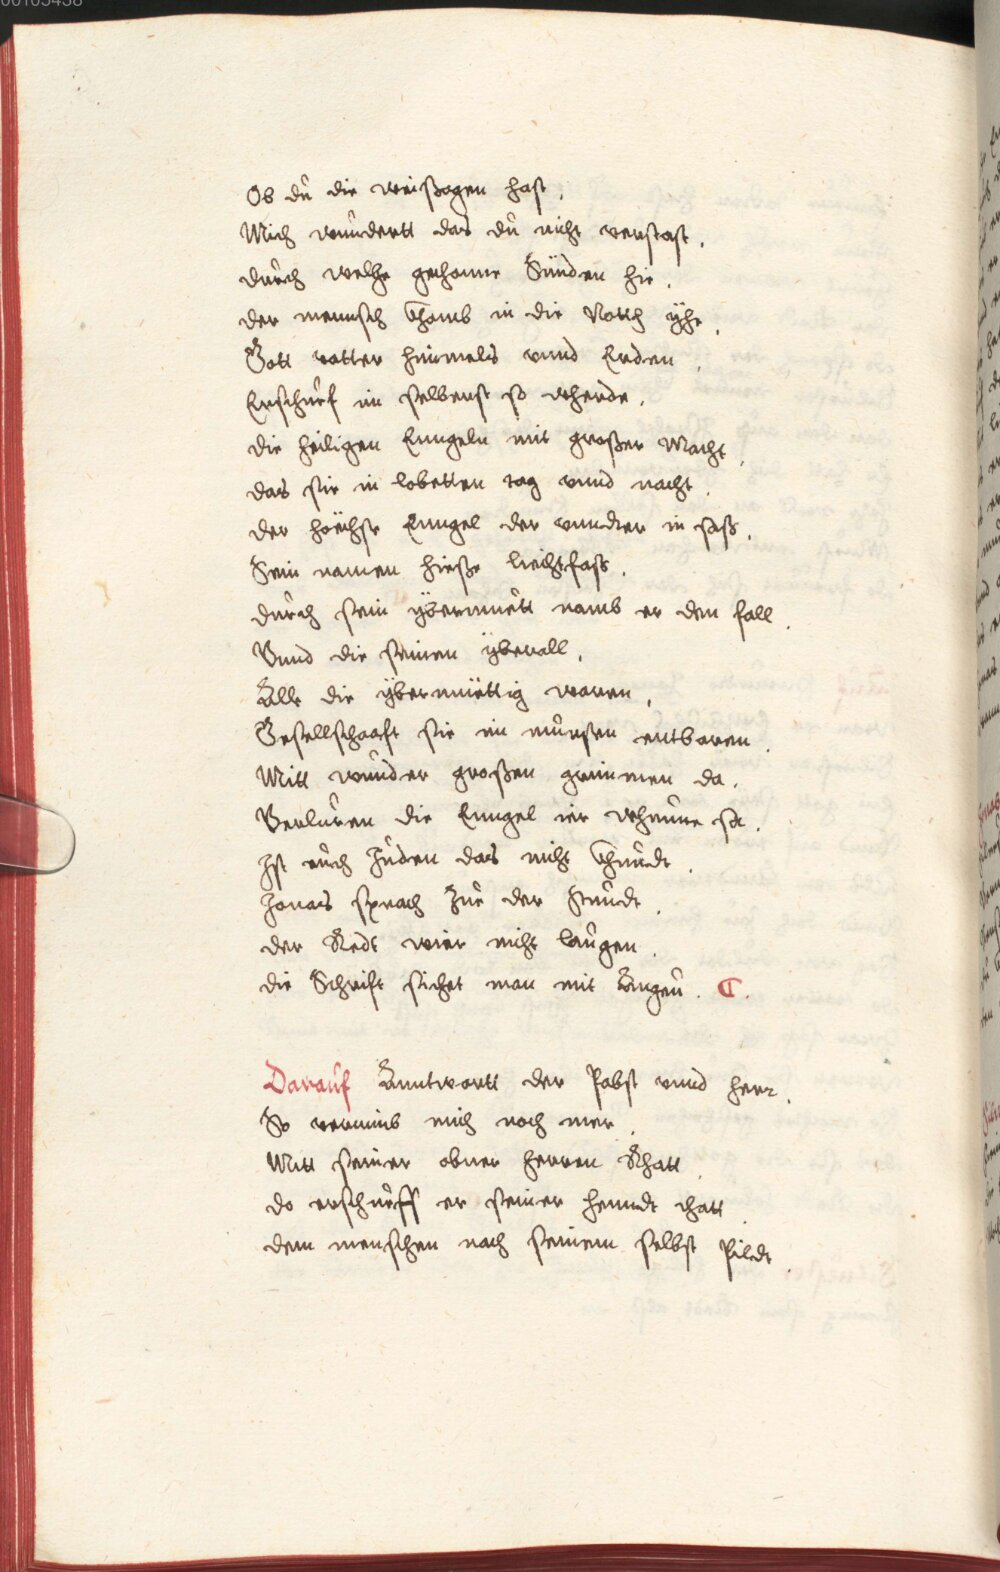 00105438
Ob du die weissagen hast.
Mich wundertt das du nicht verstast.
durch welhe gethonne Sünden hie.
der mennsch khomb in die Notth yhe.
Gott vatter himmels vnnd Erden.
Erschuef im selbenst so wherde.
die heiligen Enngeln mit großer Macht.
das sie in lobetten tag vnnd nacht.
der höchst Enngel der vnndter in sass.
Sein namen hiesse liechtfass.
durch sein ÿbermuett namb er den fall.
Vnnd die seinen ÿberall.
Alle die ÿbermüettig waren.
Gesellschaafft sie im muesten entbaren.
Mitt wunder großen grimmen da.
Verluren die Enngel ier whunne so.
Ist euch Juden das nicht khundt.
Jonas sprach Zue der Stundt.
der Redt wier nicht laugen.
die Schrift sichet man mit Augen. C.
Darauf Anntwortt der Pabst vnnd herr.
So vernimb mich noch mer.
Mitt seiner obner herren Rhatt.
do erschueff er seiner henndt thatt.
dem menschen nach seinem selbst Pildt.